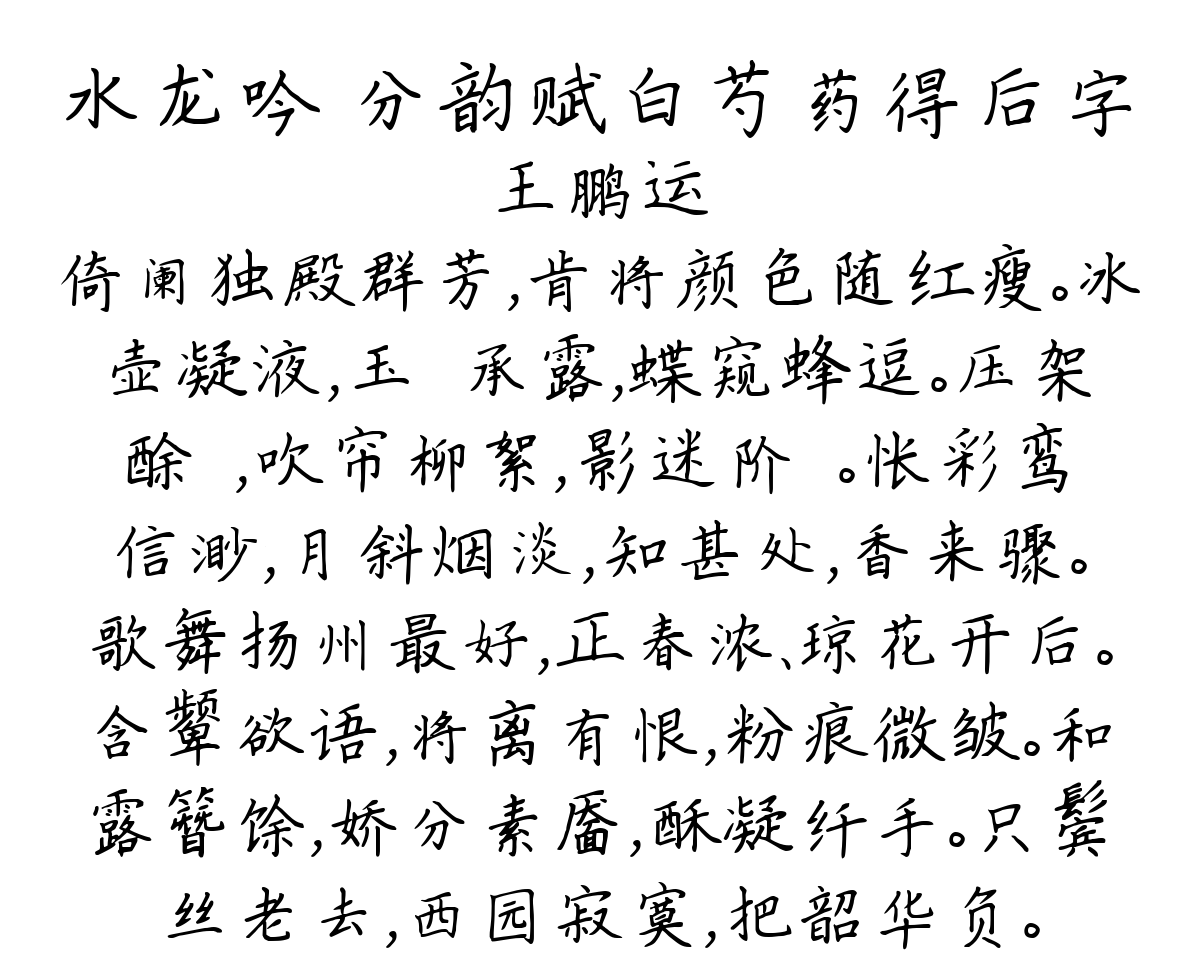 水龙吟 分韵赋白芍药得后字
王鹏运
倚阑独殿群芳,肯将颜色随红瘦。冰
壶凝液,玉 承露,蝶窥蜂逗。压架
酴 ,吹帘柳絮,影迷阶 。怅彩鸾
信渺,月斜烟淡,知甚处,香来骤。
歌舞扬州最好,正春浓、琼花开后。
含颦欲语,将离有恨,粉痕微皱。和
露簪馀,娇分素靥,酥凝纤手。只鬓
丝老去,西园寂寞,把韶华负。